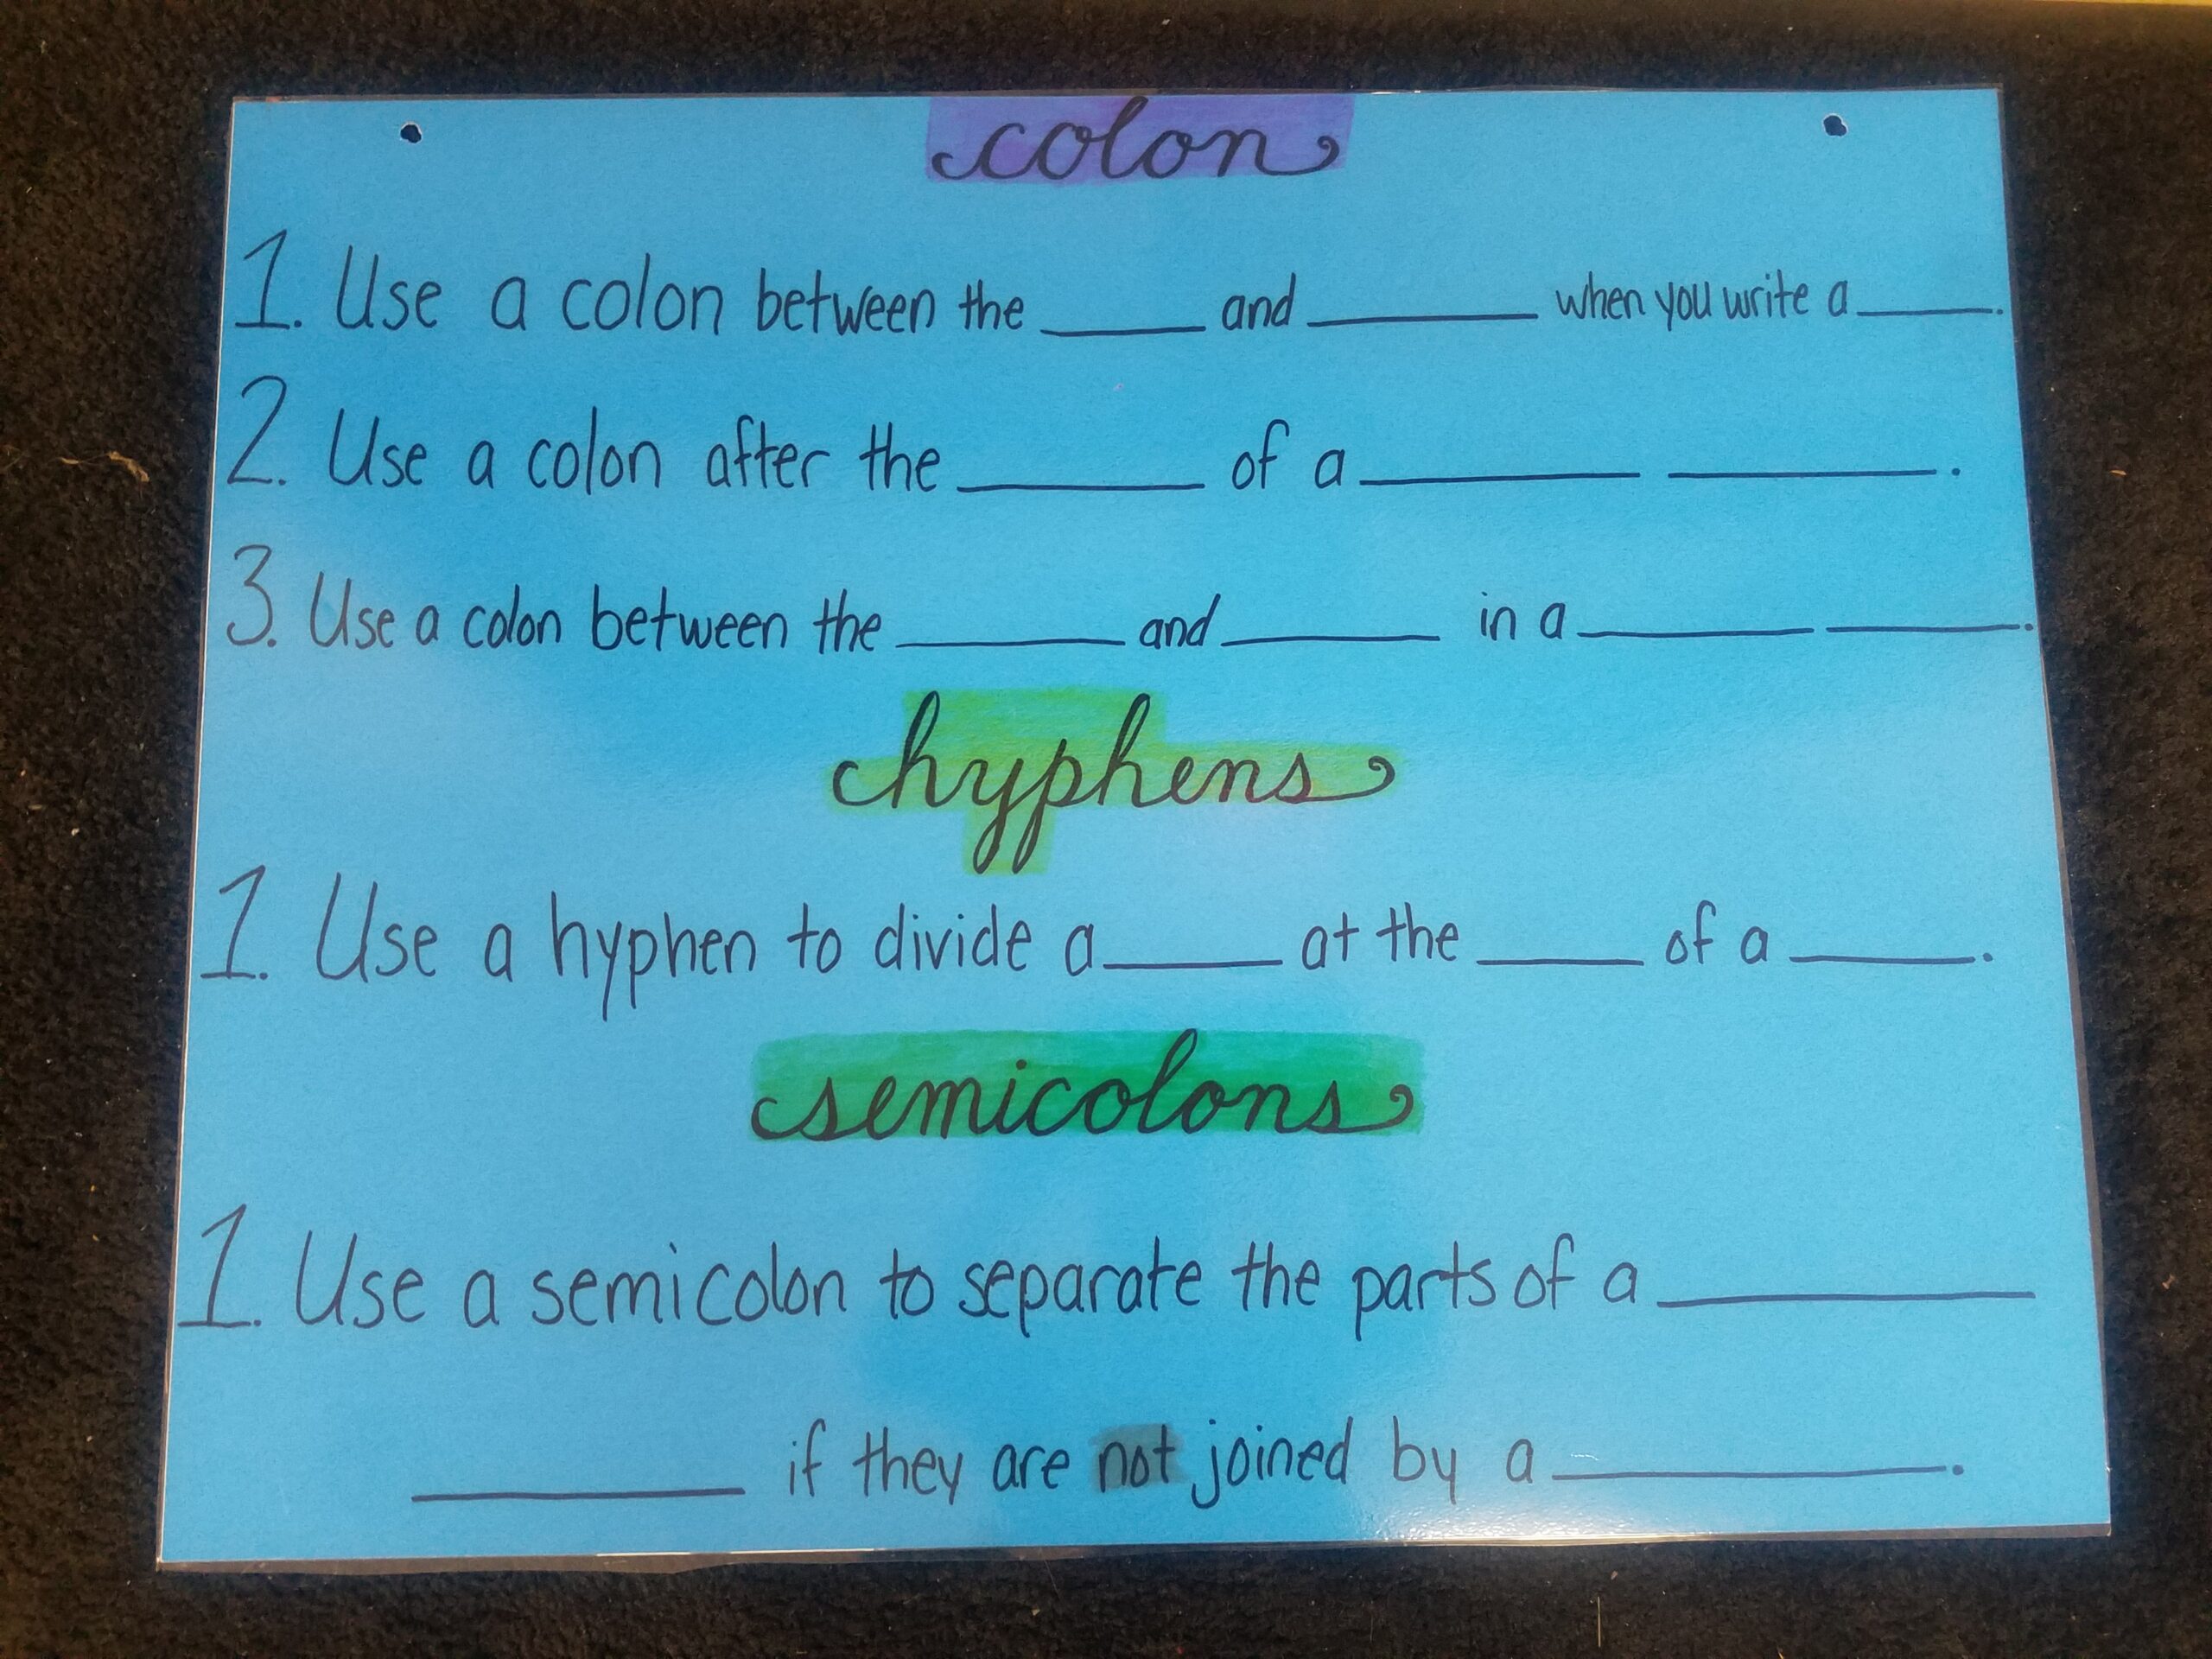 colon
1. Use a colon between the ____ and ____ when you write a ____.
2. Use a colon after the ____ of a ____ ____.
3. Use a colon between the ____ and ____ in a ____ ____.
hyphens
1. Use a hyphen to divide a ____ at the ____ of a ____.
semicolons
1. Use a semicolon to separate the parts of a ____
____ if they are not joined by a ____.